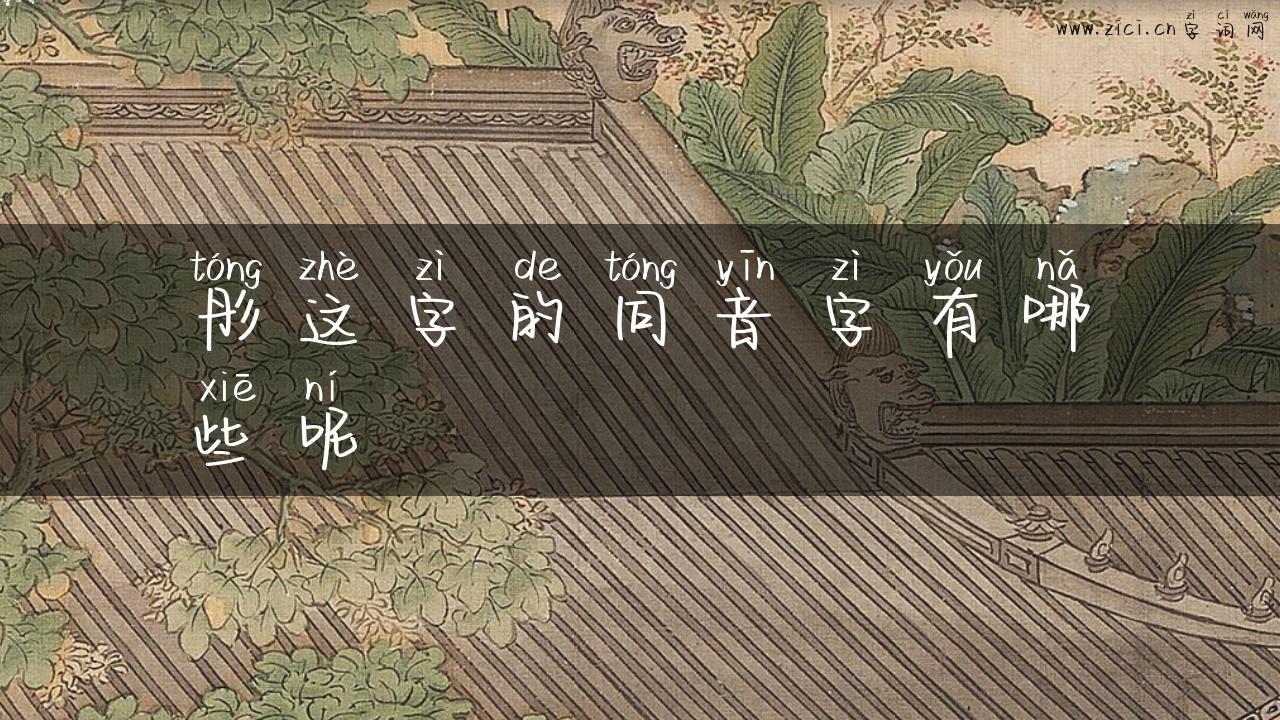 zì cí wǎng
www.zici.cn 字 词 网
tóng zhè zì de tóng yīn zì yǒu nǎ
彤 这 字 的 同 音 字 有 哪
xiē ní
些 呢